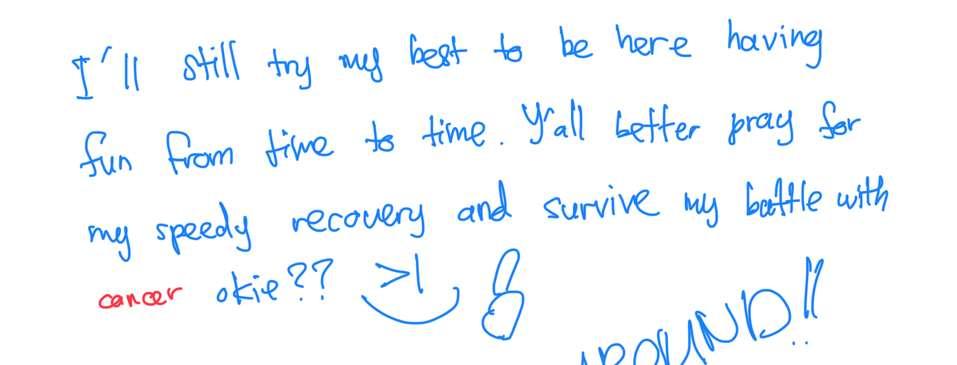 I'll still try my best to be here having
fun from time to time. Y'all better pray for
my speedy recovery and survive my battle with
cancer okie?? >|